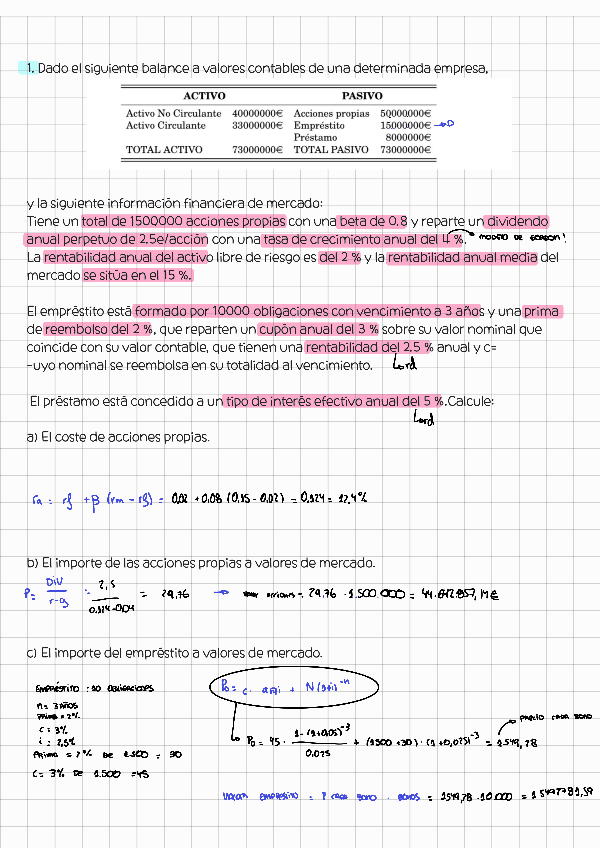 1. Dado el siguiente balance a valores contables de una determinada empresa,
ACTIVO PASIVO
Activo No Circulante 40000000€ Acciones propias 50000000€
Activo Circulante 33000000€ Empréstito 15000000€ → D
Préstamo 8000000€
TOTAL ACTIVO 73000000€ TOTAL PASIVO 73000000€
y la siguiente información financiera de mercado:
Tiene un total de 1500000 acciones propias con una beta de 0.8 y reparte un dividendo
anual perpetuo de 2.5e/acción con una tasa de crecimiento anual del 4 %. MODELO DE GORDON!
La rentabilidad anual del activo libre de riesgo es del 2 % y la rentabilidad anual media del
mercado se sitúa en el 15 %.
El empréstito está formado por 10000 obligaciones con vencimiento a 3 años y una prima
de reembolso del 2 %, que reparten un cupón anual del 3 % sobre su valor nominal que
coincide con su valor contable, que tienen una rentabilidad del 2.5 % anual y c=
-uyo nominal se reembolsa en su totalidad al vencimiento. rd
El préstamo está concedido a un tipo de interés efectivo anual del 5 %.Calcule:
rd
a) El coste de acciones propias.
ra = rf + β (rm - rf) = 0,02 + 0,08 (0,15 - 0,02) = 0,124 = 12,4%
b) El importe de las acciones propias a valores de mercado.
P = DIV / r-g = 2,5 / 0,124-0,04 = 29,76 → acciones = 29,76 · 1.500.000 = 44.642.857,14€
c) El importe del empréstito a valores de mercado.
EMPRÉSTITO : 10 OBLIGACIONES
P0 = c · an¬i + N(1+i)^-n
n = 3 AÑOS
PRIMA = 2%
C = 3%
i = 2,5%
PRIMA = 2% DE 1.500 = 30
C = 3% DE 1.500 = 45
PRECIO CADA BONO
P0 = 45 · 1-(1+0,05)^-3 / 0.025 + (1500 +30) · (1+0,025)^-3 = 1549,78
VALOR EMPRÉSTITO = P CADA BONO · BONOS = 1549,78 · 10.000 = 15497781,39